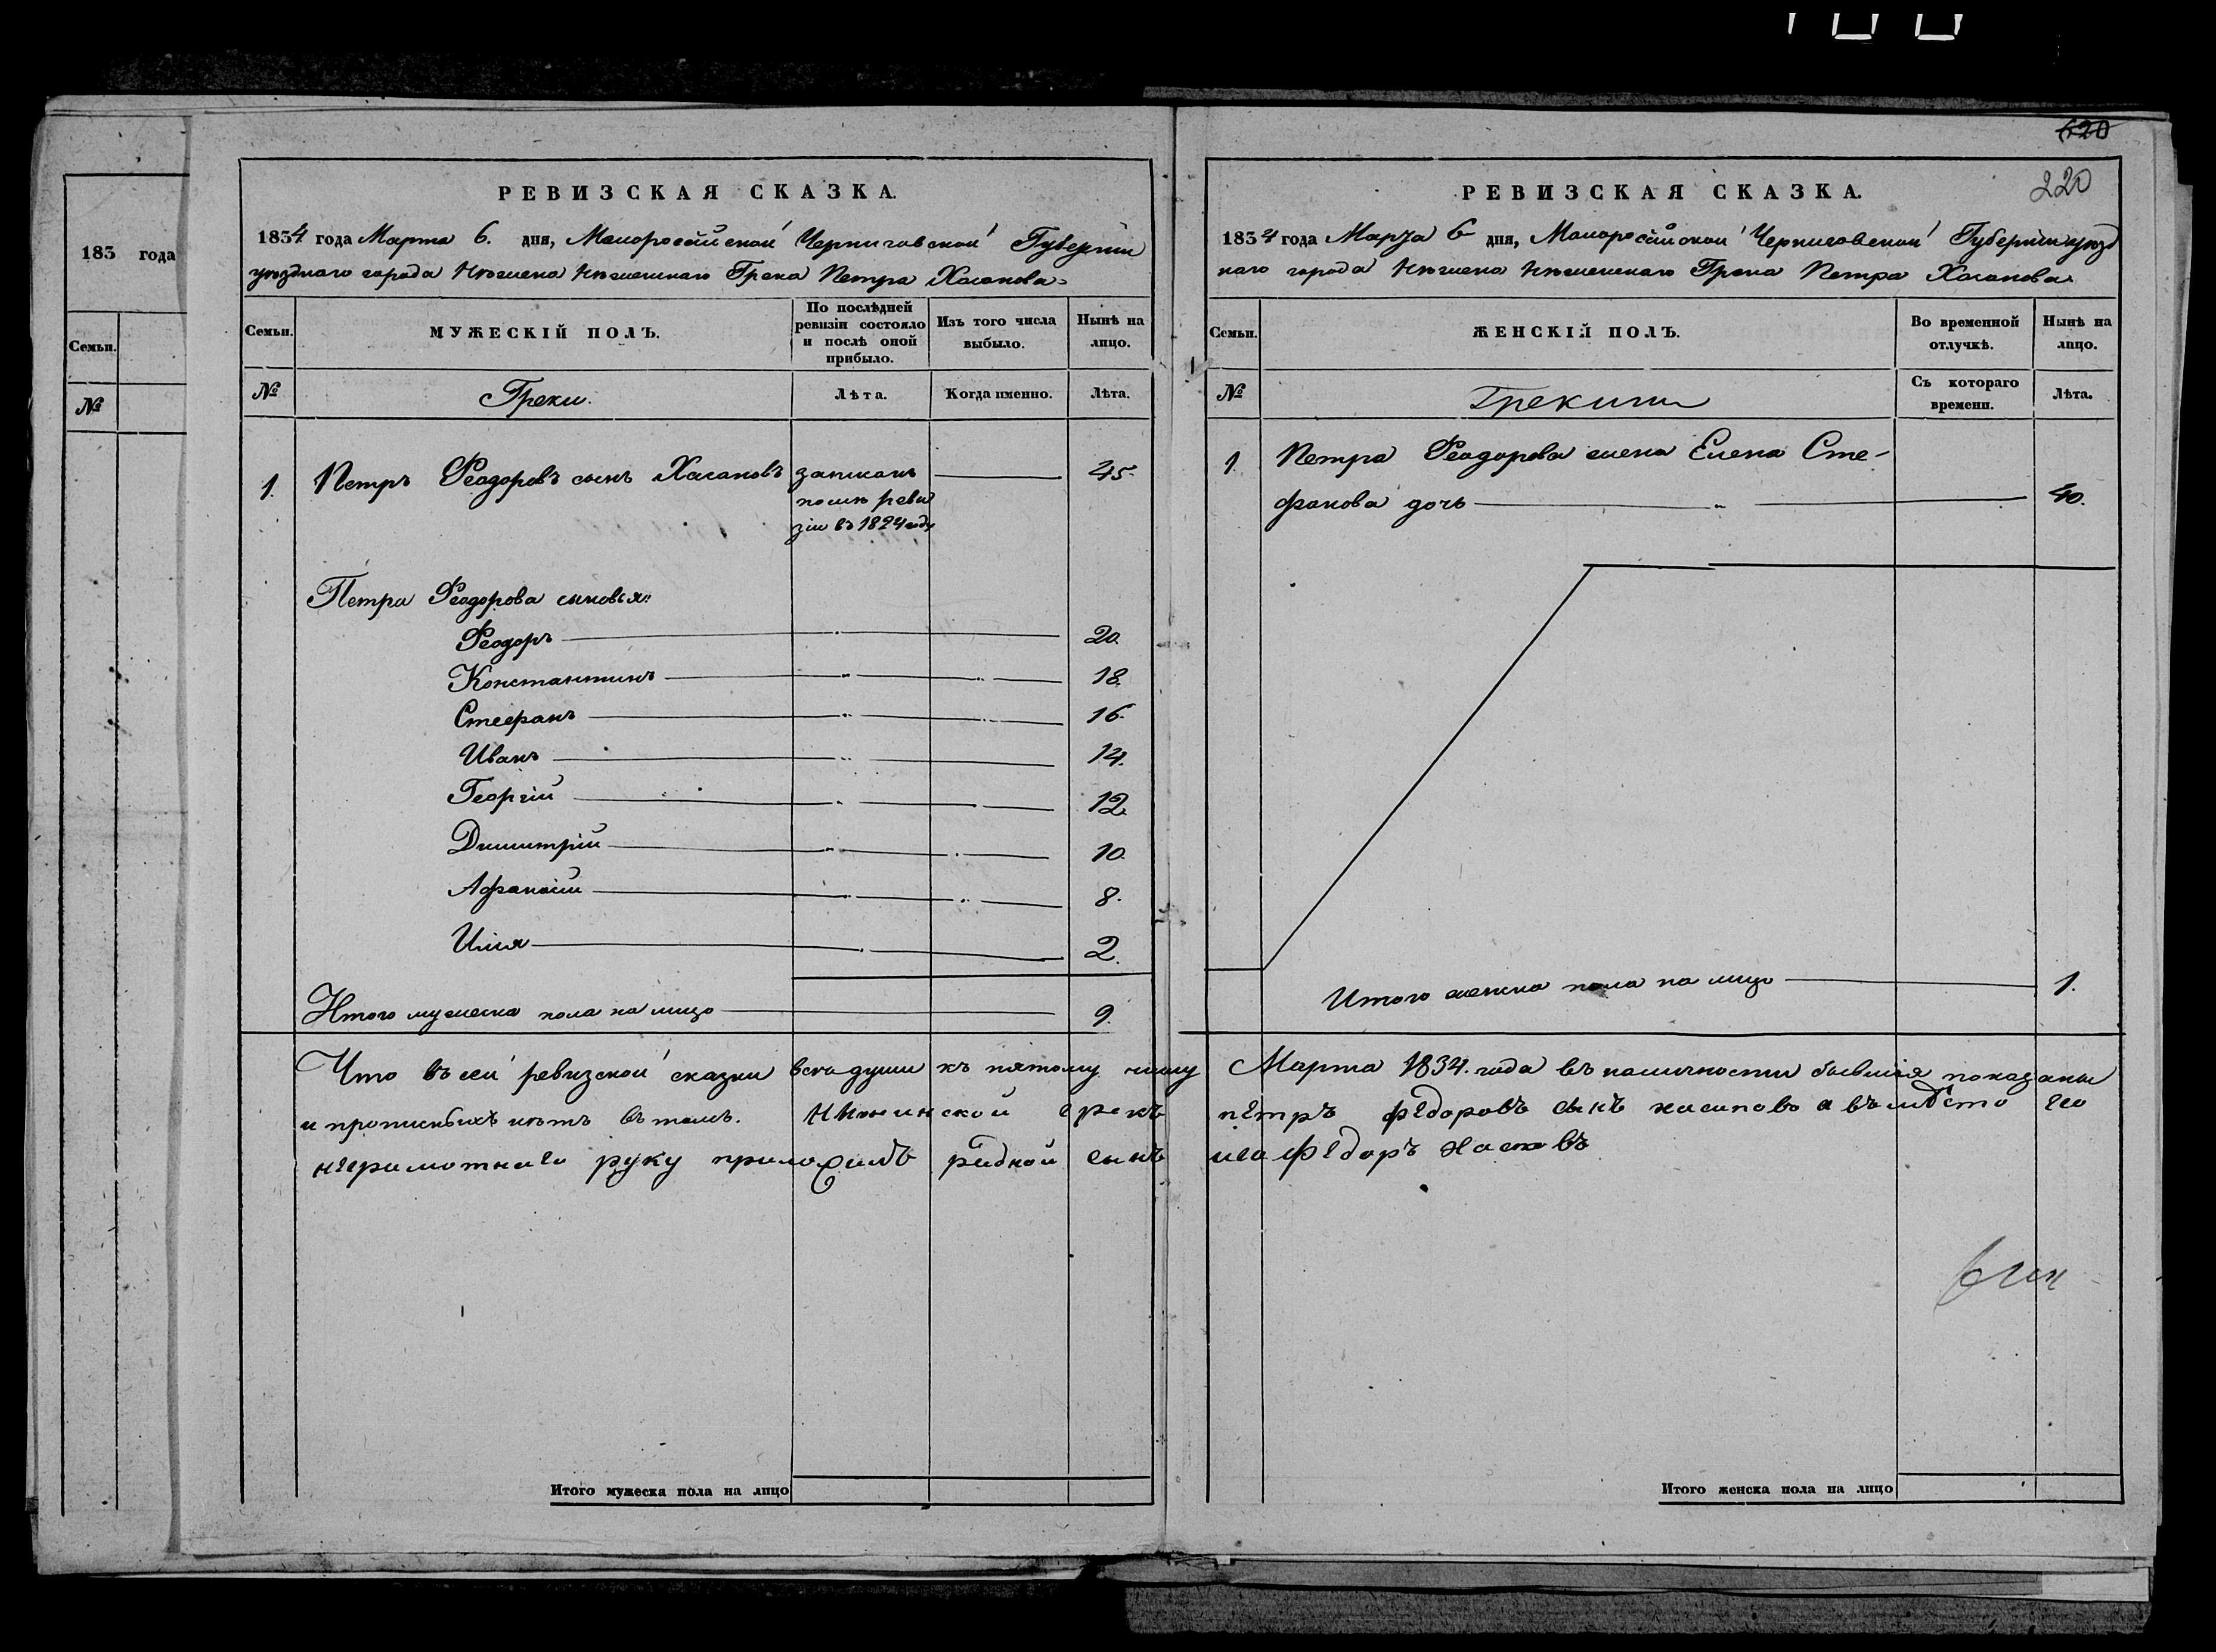 620
220
183 года
Семьи.
№
РЕВИЗСКАЯ СКАЗКА.
1834 года Марта 6. дня, Малоросійской Черниговской Губерніи
уѣзднаго города Нѣжина Нѣжинскаго Грека Петра Хасанова
Семьи.
МУЖЕСКІЙ ПОЛЪ.
По послѣдней
ревизіи состояло
и послѣ оной
прибыло.
Изъ того числа
выбыло.
Нынѣ на
лицо.
№
Греки.
Лѣта.
Когда именно.
Лѣта.
1. Петръ Феодоровъ сынъ Хасановъ записанъ 45.
послѣ реви
зіи въ 1824 году
Петра Феодорова сыновья:
Феодоръ 20.
Константинъ 18.
Стефанъ 16.
Иванъ 14.
Георгій 12.
Димитрій 10.
Афанасій 8.
Илія 2.
Итого мужеска пола на лицо 9.
РЕВИЗСКАЯ СКАЗКА.
1834 года Марта 6 дня, Малоросійской Черниговской Губерніи уѣзд
наго города Нѣжина Нѣжинскаго Грека Петра Хасанова
Семьи.
ЖЕНСКІЙ ПОЛЪ.
Во временной
отлучкѣ.
Нынѣ на
лицо.
№
Грекини
Съ котораго
времени.
Лѣта.
1. Петра Феодорова жена Елена Сте-
фанова дочь 40.
Итого женска пола на лицо 1.
Что въ сей ревизской сказки всѣ души къ пятому числу Марта 1834. года въ наличности бывшія показаны
и прописныхъ нѣтъ въ томъ. грекъ петръ федоровъ сынъ а въмѣсто его
неграмотнаго руку приложилъ родной сынъ его федоръ
Итого мужеска пола на лицо
Итого женска пола на лицо